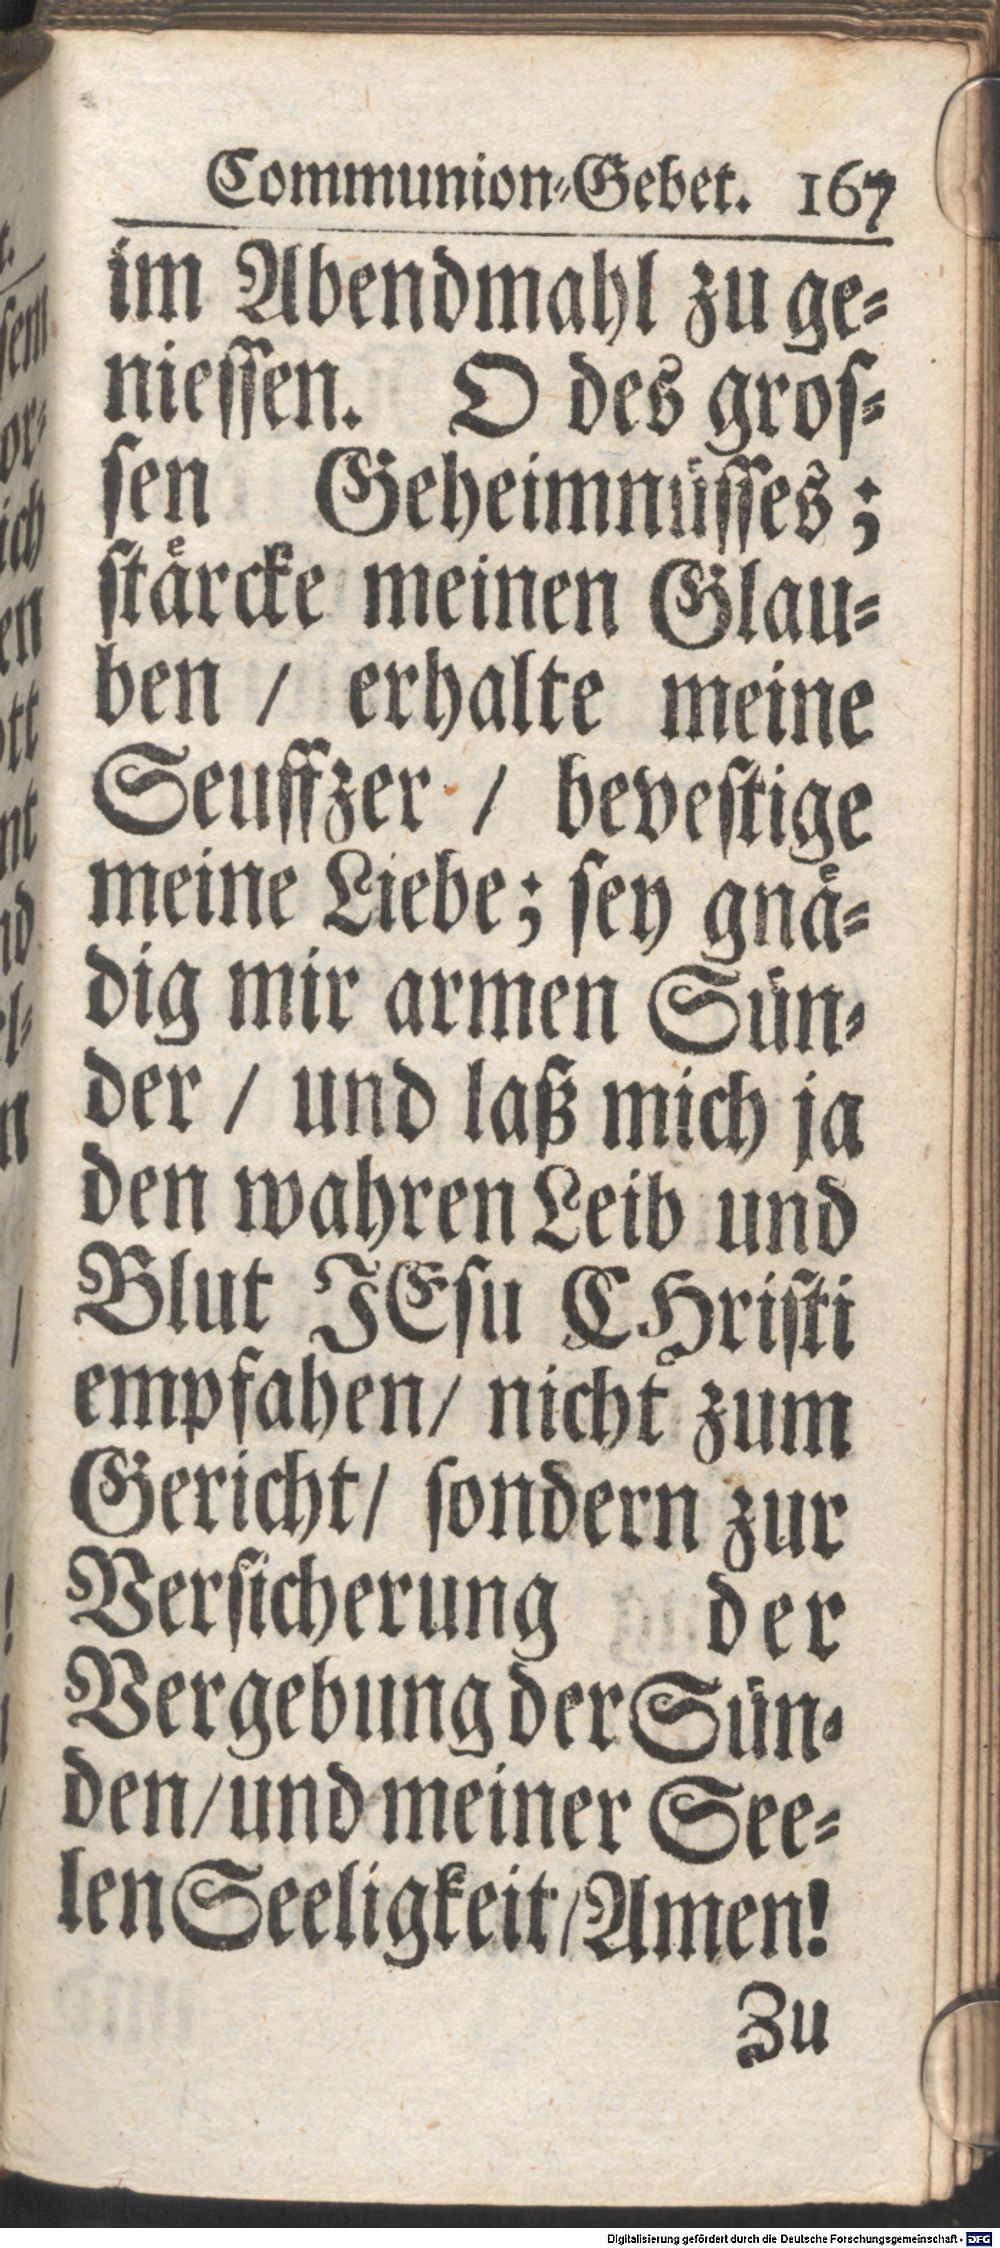 Communion-Gebet. 167
im Abendmahl zu ge-
niessen. O des gros-
sen Geheimnüsses;
stårcke meinen Glau-
ben / erhalte meine
Seuffzer / bevestige
meine Liebe; sey gnå-
dig mir armen Sün-
der / und laß mich ja
den wahren Leib und
Blut JEsu CHristi
empfahen / nicht zum
Gericht / sondern zur
Versicherung der
Vergebung der Sün-
den / und meiner See-
len Seeligkeit / Amen!
Zu
Digitalisierung gefördert durch die Deutsche Forschungsgemeinschaft - DFG